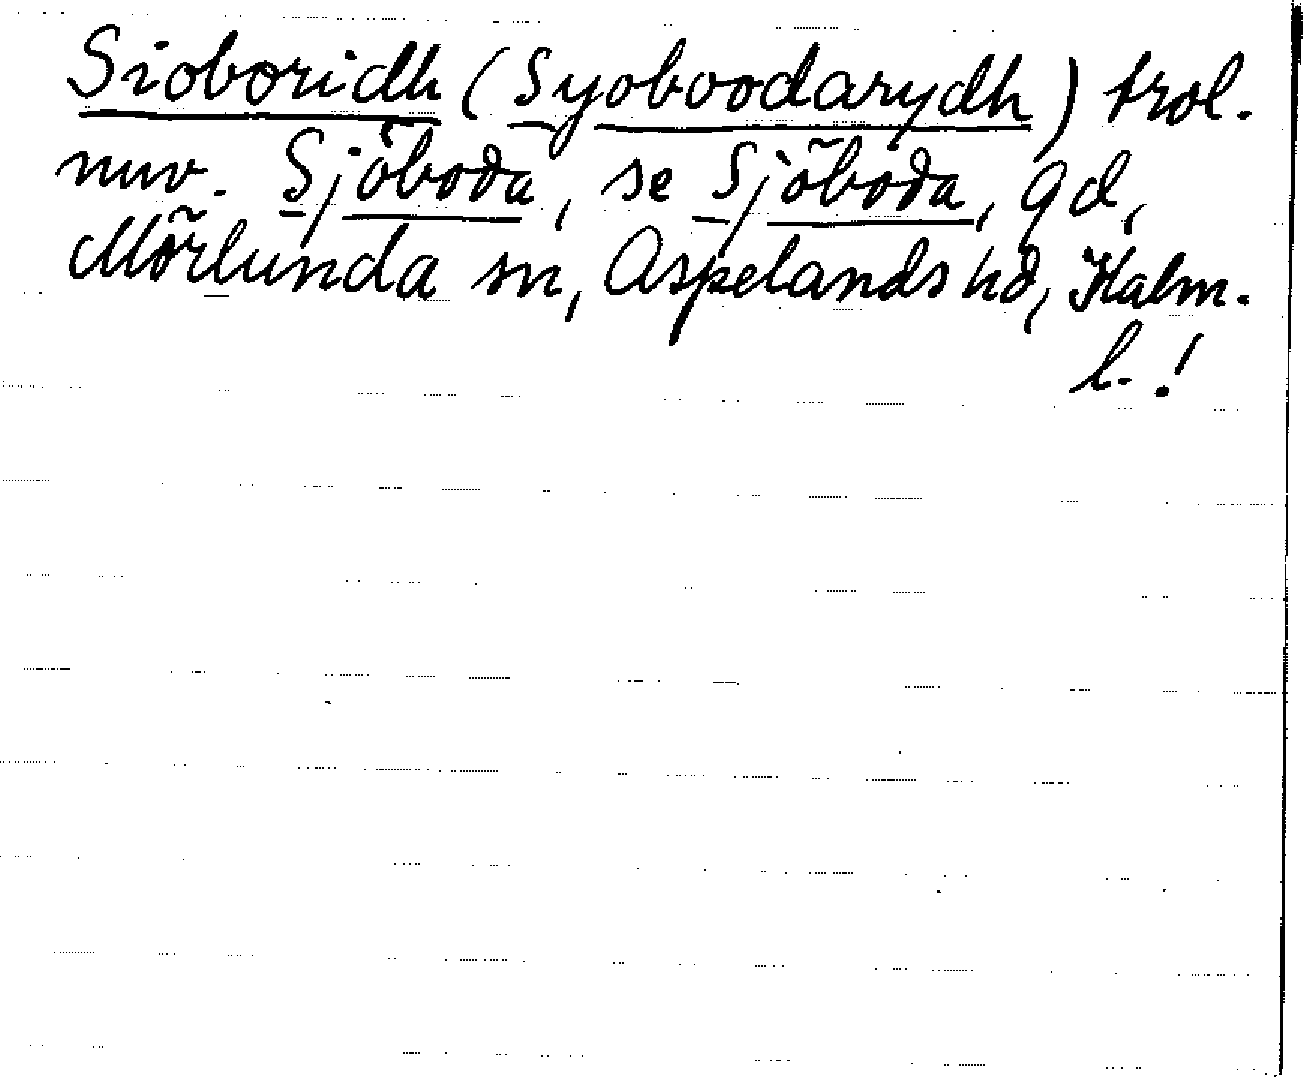 Sioboridh (Syoboodarydh) trol.
nuv. Sjöboda, se Sjöboda, gd,
Mörlunda sn, Aspelands hd, Kalm.
l.!